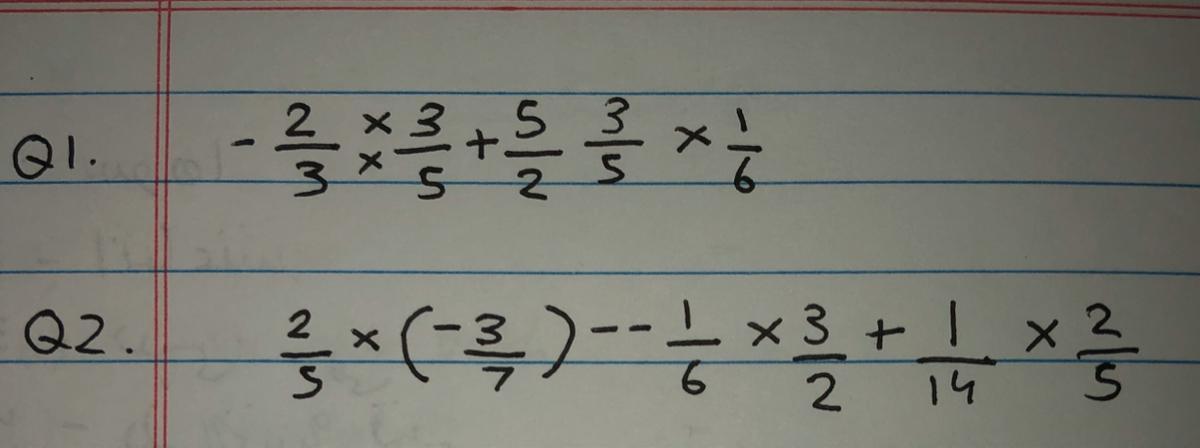 Q1. - 2/3 × × 3/5 + 5/2 3/5 × 1/6
Q2. 2/5 × (-3/7) - - 1/6 × 3/2 + 1/14 × 2/5